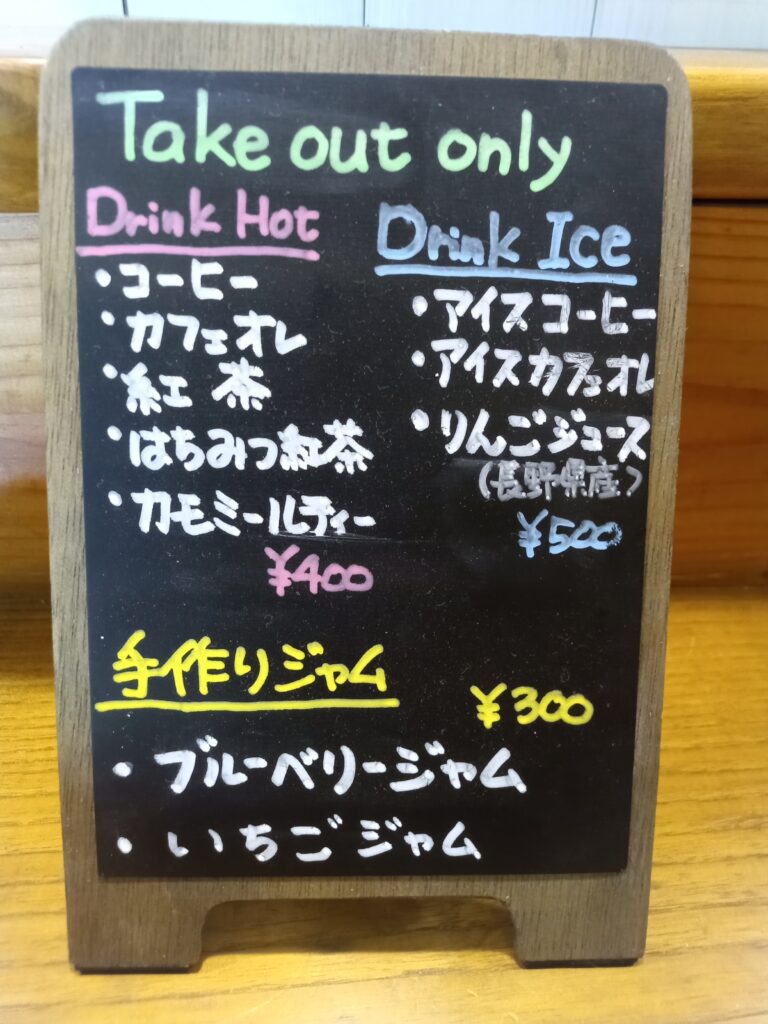 Take out only
Drink Hot
・コーヒー
・カフェオレ
・紅茶
・はちみつ紅茶
・カモミールティー
¥400
Drink Ice
・アイスコーヒー
・アイスカフェオレ
・りんごジュース
(長野県産)
¥500
手作りジャム ¥300
・ブルーベリージャム
・いちごジャム